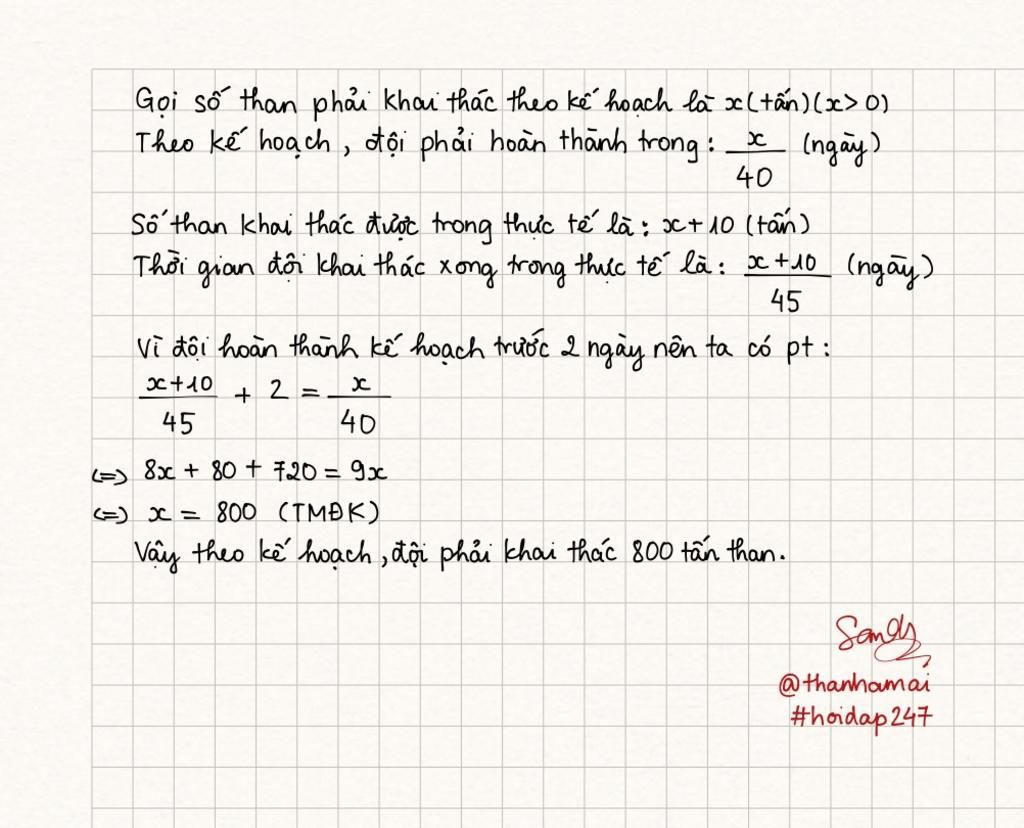 Gọi số than phải khai thác theo kế hoạch là x (tấn) (x > 0)
Theo kế hoạch, đội phải hoàn thành trong: x/40 (ngày)
Số than khai thác được trong thực tế là: x + 10 (tấn)
Thời gian đội khai thác xong trong thực tế là: x + 10/45 (ngày)
Vì đội hoàn thành kế hoạch trước 2 ngày nên ta có pt:
x + 10/45 + 2 = x/40
<=> 8x + 80 + 720 = 9x
<=> x = 800 (TMĐK)
Vậy theo kế hoạch, đội phải khai thác 800 tấn than.
Sandy
@thanhamai
#hoidap247